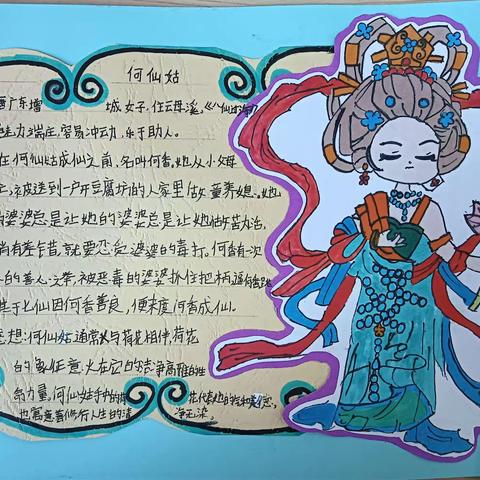 何仙姑
广东增 城女子,住云母溪,《八仙过海》
魅力端庄,容易冲动,乐于助人。
在何仙姑成仙之前,名叫何香。她从小母
被送到一户开豆腐坊的人家里做童养媳。她
婆婆总是让她的婆婆总是让她做苦力活,
尚有差错,就要忍受婆婆的毒打。何香有一次
的善人之举,被恶毒的婆婆抓住把柄
七仙因何香善良,便来度何香成仙。
想:何仙姑通常与荷花相伴,荷花
的象征意义在它的
命力量,何仙姑手中的荷 花代表她的
也寓意着修行人生的清 净无染。